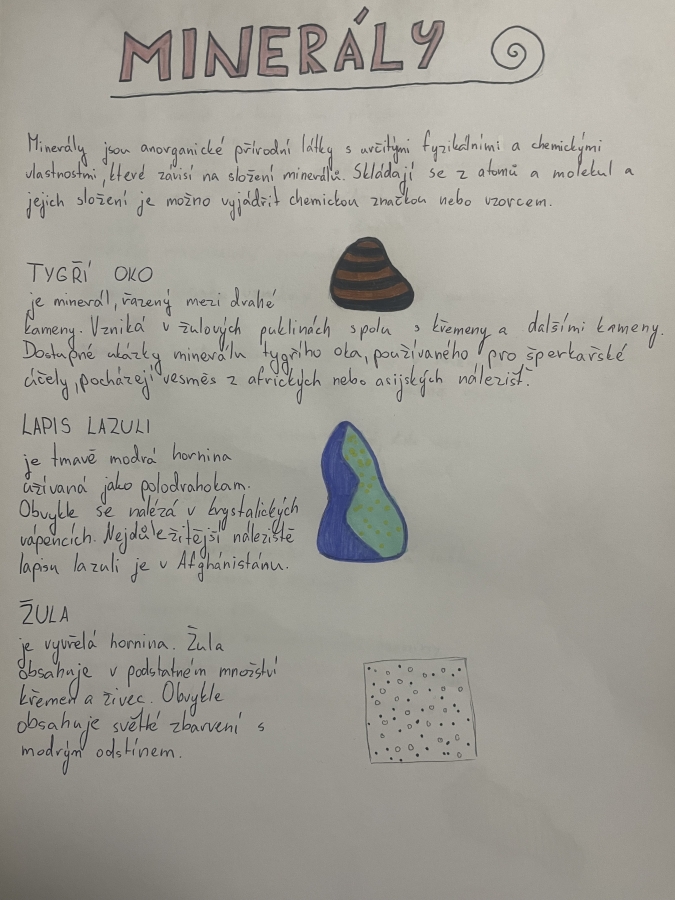 MINERÁLY
Minerály jsou anorganické přírodní látky s určitými fyzikálními a chemickými
vlastnostmi, které závisí na složení minerálů. Skládají se z atomů a molekul a
jejich složení je možno vyjádřit chemickou značkou nebo vzorcem.
TYGŘÍ OKO
je minerál, řazený mezi drahé
kameny. Vzniká v žulových puklinách spolu s křemeny a dalšími kameny.
Dostupné ukázky minerálu tygřího oka, používaného pro šperkařské
účely, pocházejí vesměs z afrických nebo asijských nálezišť.
LAPIS LAZULI
je tmavě modrá hornina
užívaná jako polodrahokam.
Obvykle se nalézá v krystalických
vápencích. Nejdůležitější náleziště
lapisu lazuli je v Afghánistánu.
ŽULA
je vyvřelá hornina. Žula
obsahuje v podstatném množství
křemen a živec. Obvykle
obsahuje světlé zbarvení s
modrým odstínem.